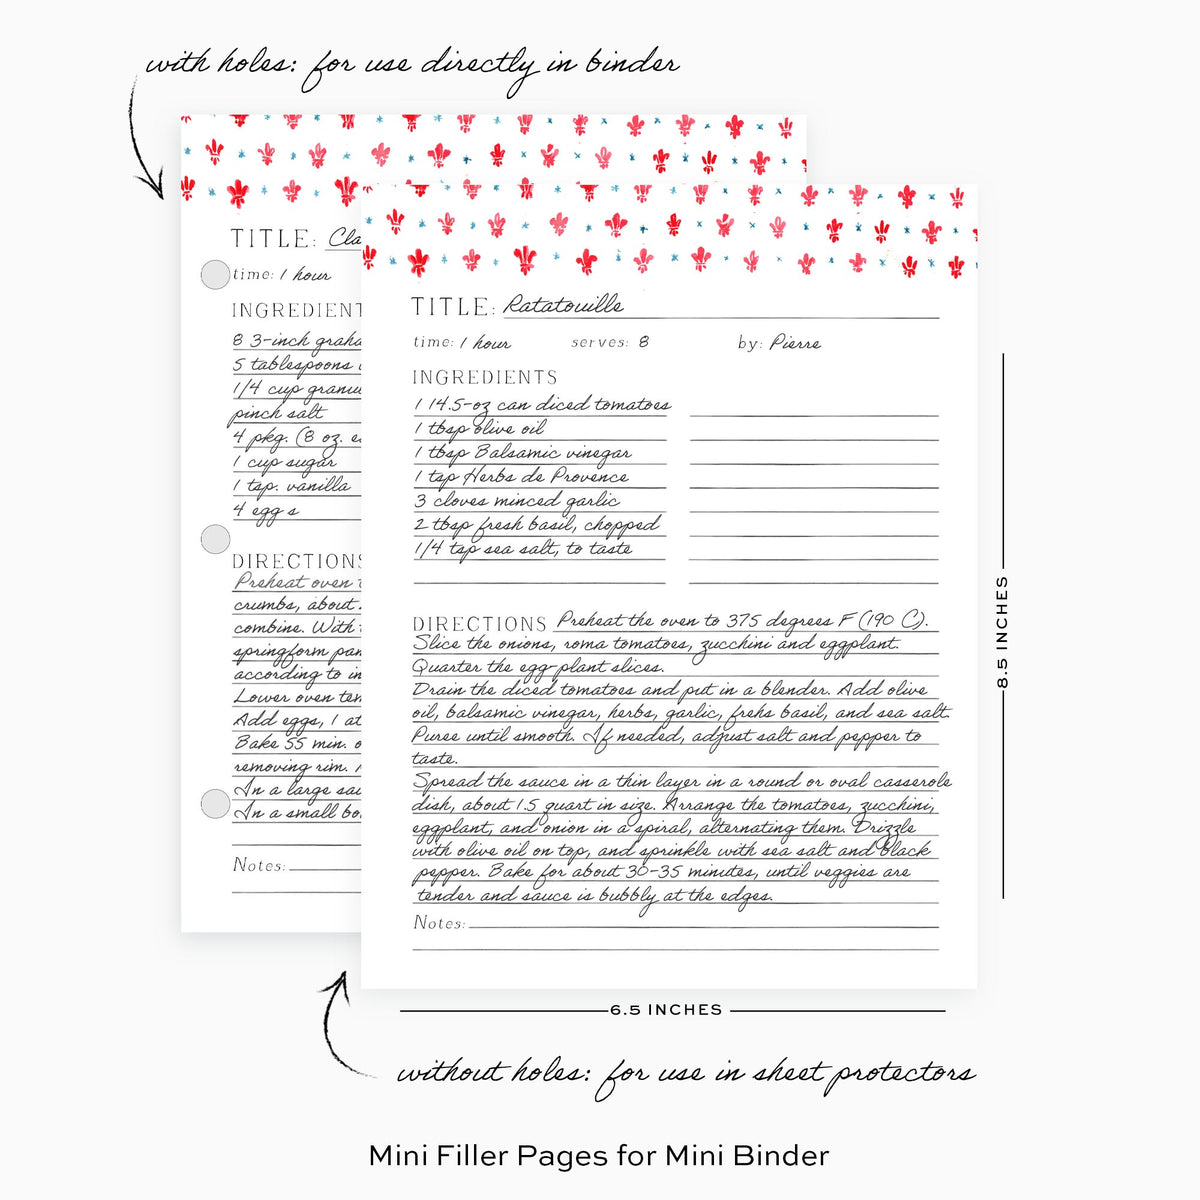 with holes: for use directly in binder
TITLE: Cla
time: 1 hour
INGREDIENT
8 3-inch graha
5 tablespoons
1/4 cup granu
pinch salt
4 pkg. (8 oz. e
1 cup sugar
1 tsp. vanilla
4 egg s
DIRECTIONS
Preheat oven
crumbs, about
combine. With
springform pan
according to in
Lower oven tem
Add eggs, 1 at
Bake 55 min. o
removing rim.
In a large sau
In a small bo
Notes:
TITLE: Ratatouille
time: 1 hour serves: 8 by: Pierre
INGREDIENTS
1 14.5-oz can diced tomatoes
1 tbsp olive oil
1 tbsp Balsamic vinegar
1 tsp Herbs de Provence
3 cloves minced garlic
2 tbsp fresh basil, chopped
1/4 tsp sea salt, to taste
DIRECTIONS Preheat the oven to 375 degrees F (190 C).
Slice the onions, roma tomatoes, zucchini and eggplant.
Quarter the egg-plant slices.
Drain the diced tomatoes and put in a blender. Add olive
oil, balsamic vinegar, herbs, garlic, frehs basil, and sea salt.
Puree until smooth. If needed, adjust salt and pepper to
taste.
Spread the sauce in a thin layer in a round or oval casserole
dish, about 1.5 quart in size. Arrange the tomatoes, zucchini,
eggplant, and onion in a spiral, alternating them. Drizzle
with olive oil on top, and sprinkle with sea salt and black
pepper. Bake for about 30-35 minutes, until veggies are
tender and sauce is bubbly at the edges.
Notes:
8.5 INCHES
6.5 INCHES
without holes: for use in sheet protectors
Mini Filler Pages for Mini Binder